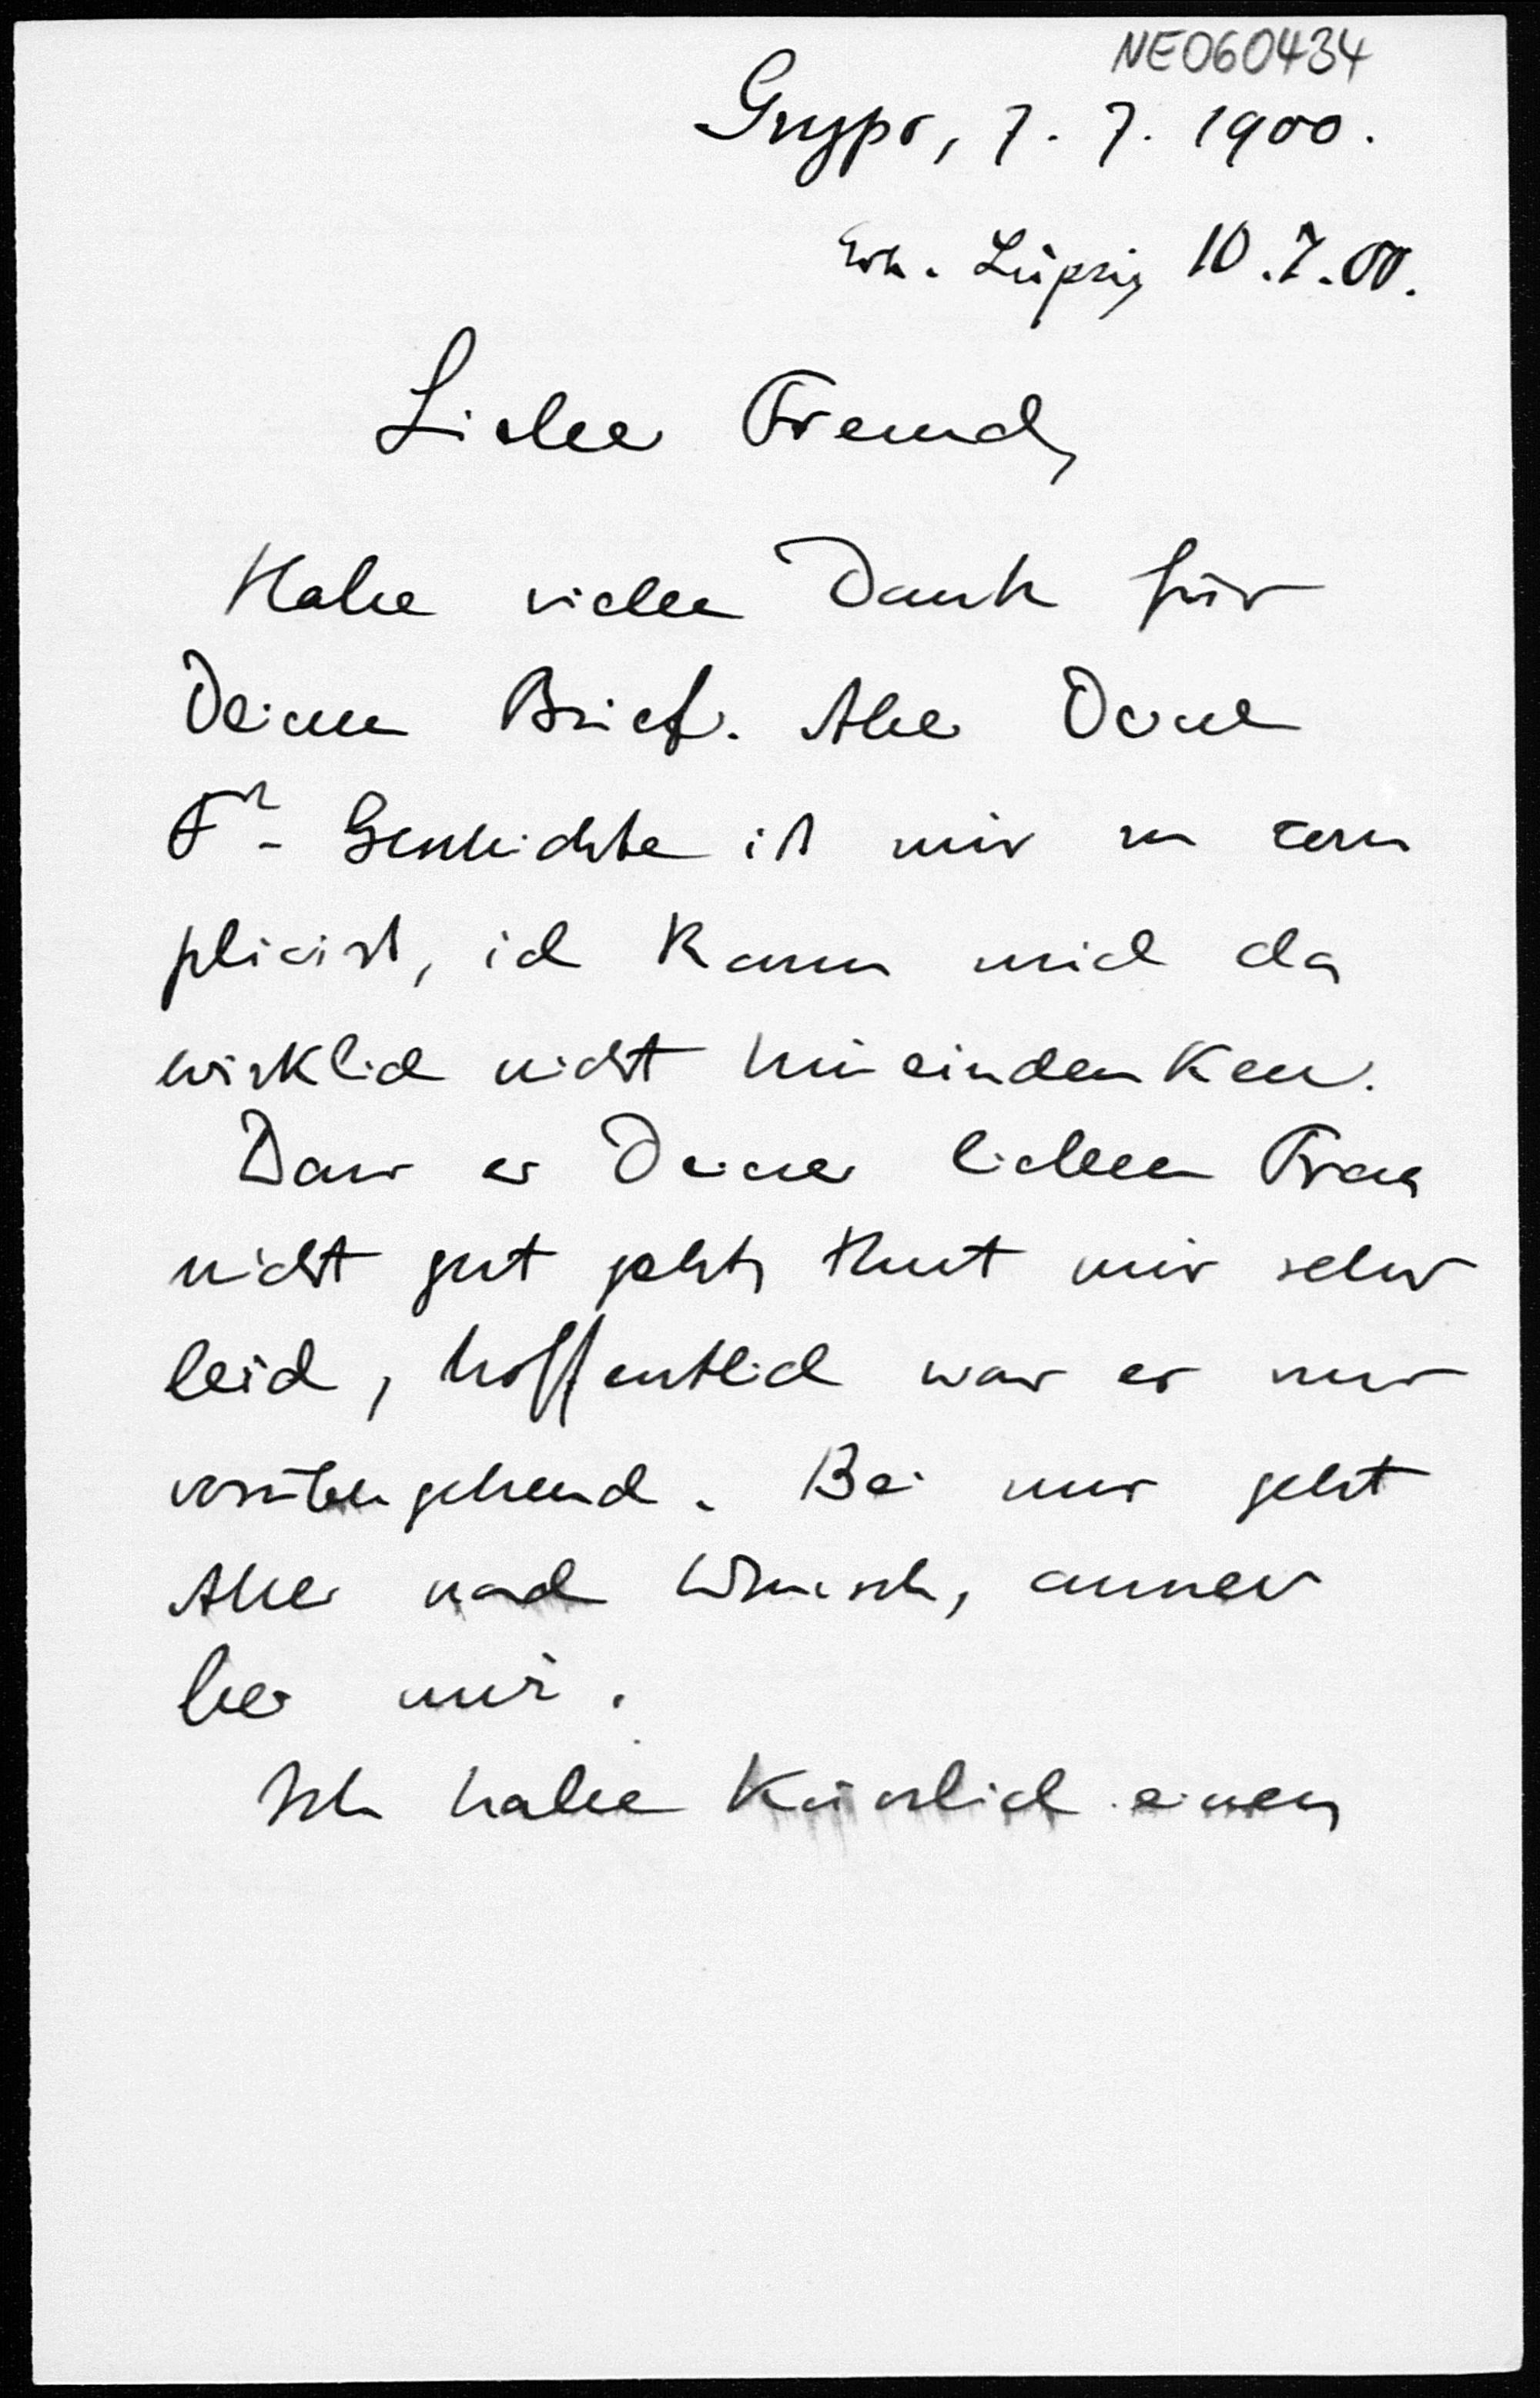 NE060434
Gryps, 7. 7. 1900.
Erh. Leipzig 10.7.00.
Lieber Freund,
Habe vielen Dank für
Deinen Brief. Aber Deine
F² - Geschichte ist mir zu com
plicirt, ich kann mich da
wirklich nicht hineindenken.
Dass es Deiner lieben Frau
nicht gut geht, thut mir sehr
leid, hoffentlich war es nur
vorübergehend. Bei uns geht
Alles nach Wunsch, ausser
bei mir.
Ich habe kürzlich einen